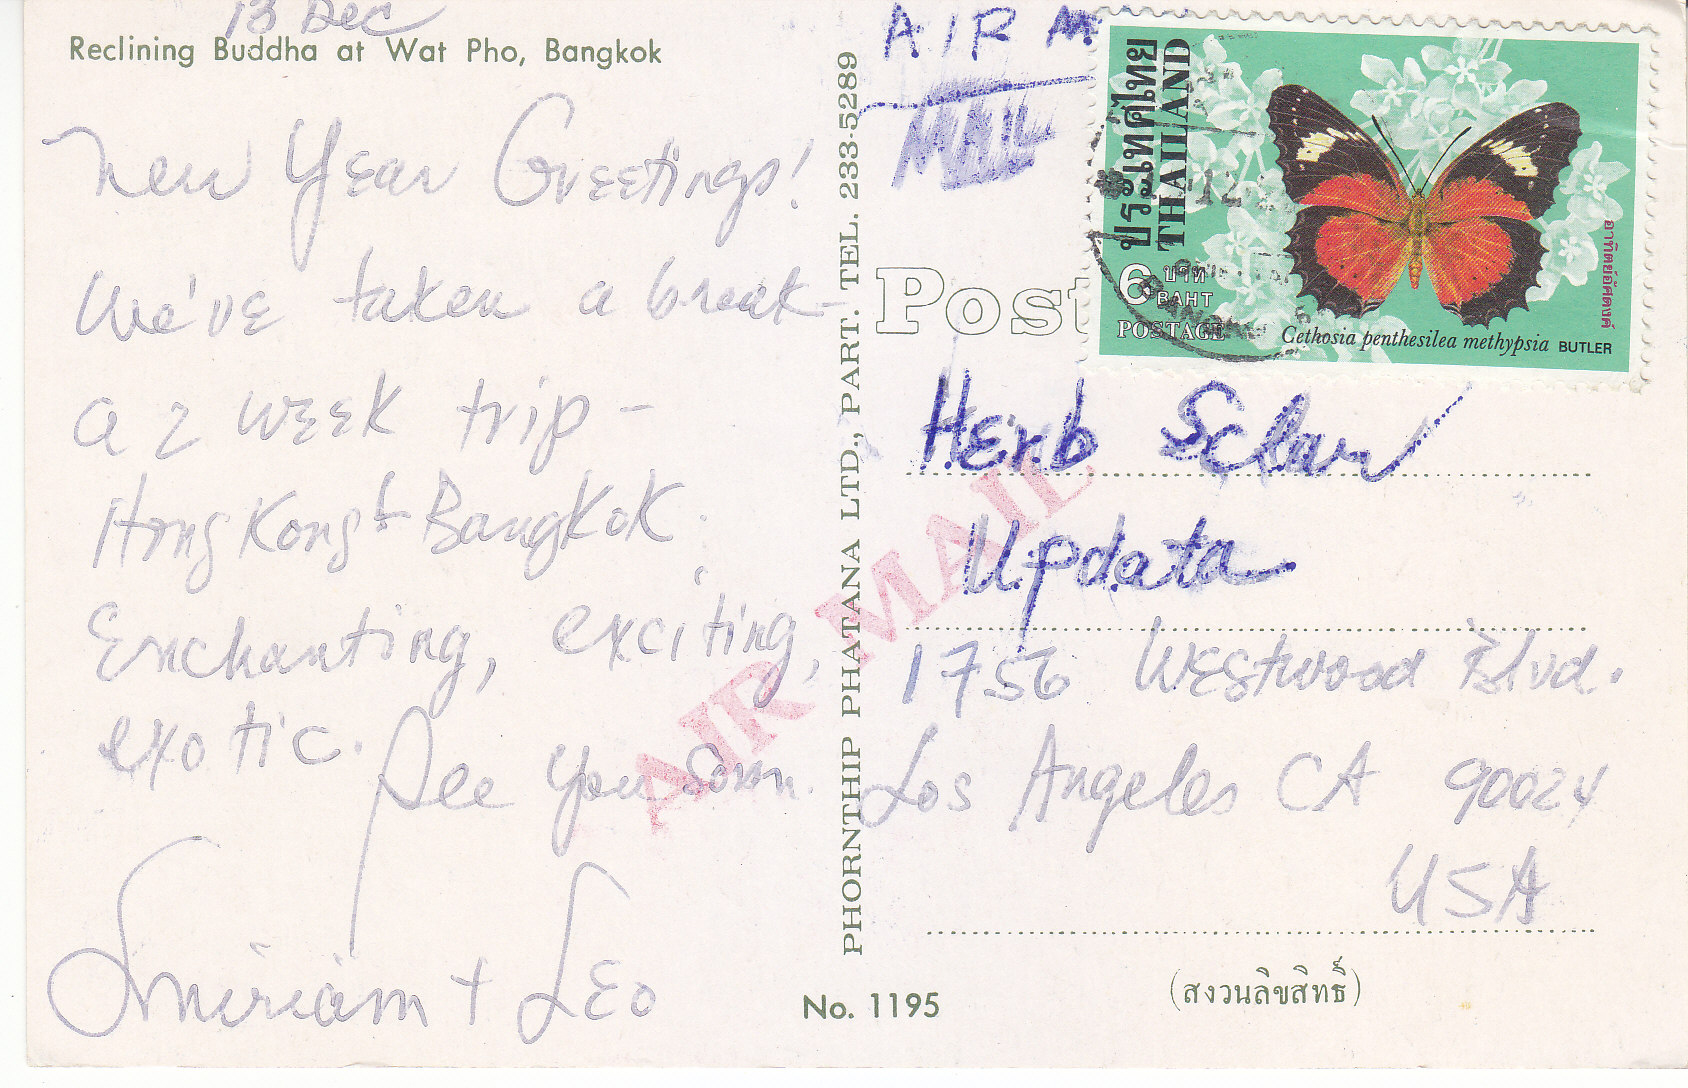 13 Dec
Reclining Buddha at Wat Pho, Bangkok
New Year Greetings!
We've taken a break -
a 2 week trip -
Hong Kong & Bangkok.
Enchanting, exciting,
exotic. See you soon.
Miriam + Leo
PHORNTHIP PHATANA LTD., PART. TEL. 233-5289
No. 1195
AIR MAIL
AIR M
MAIL
Post
ประเทศไทย
THAILAND
6 บาท
BAHT
POSTAGE
12
BANGK
Cethosia penthesilea methypsia BUTLER
อาทิตย์อัศดงค์
Herb Sclar
Updata
1756 Westwood Blvd.
Los Angeles CA 90024
USA
(สงวนลิขสิทธิ์)